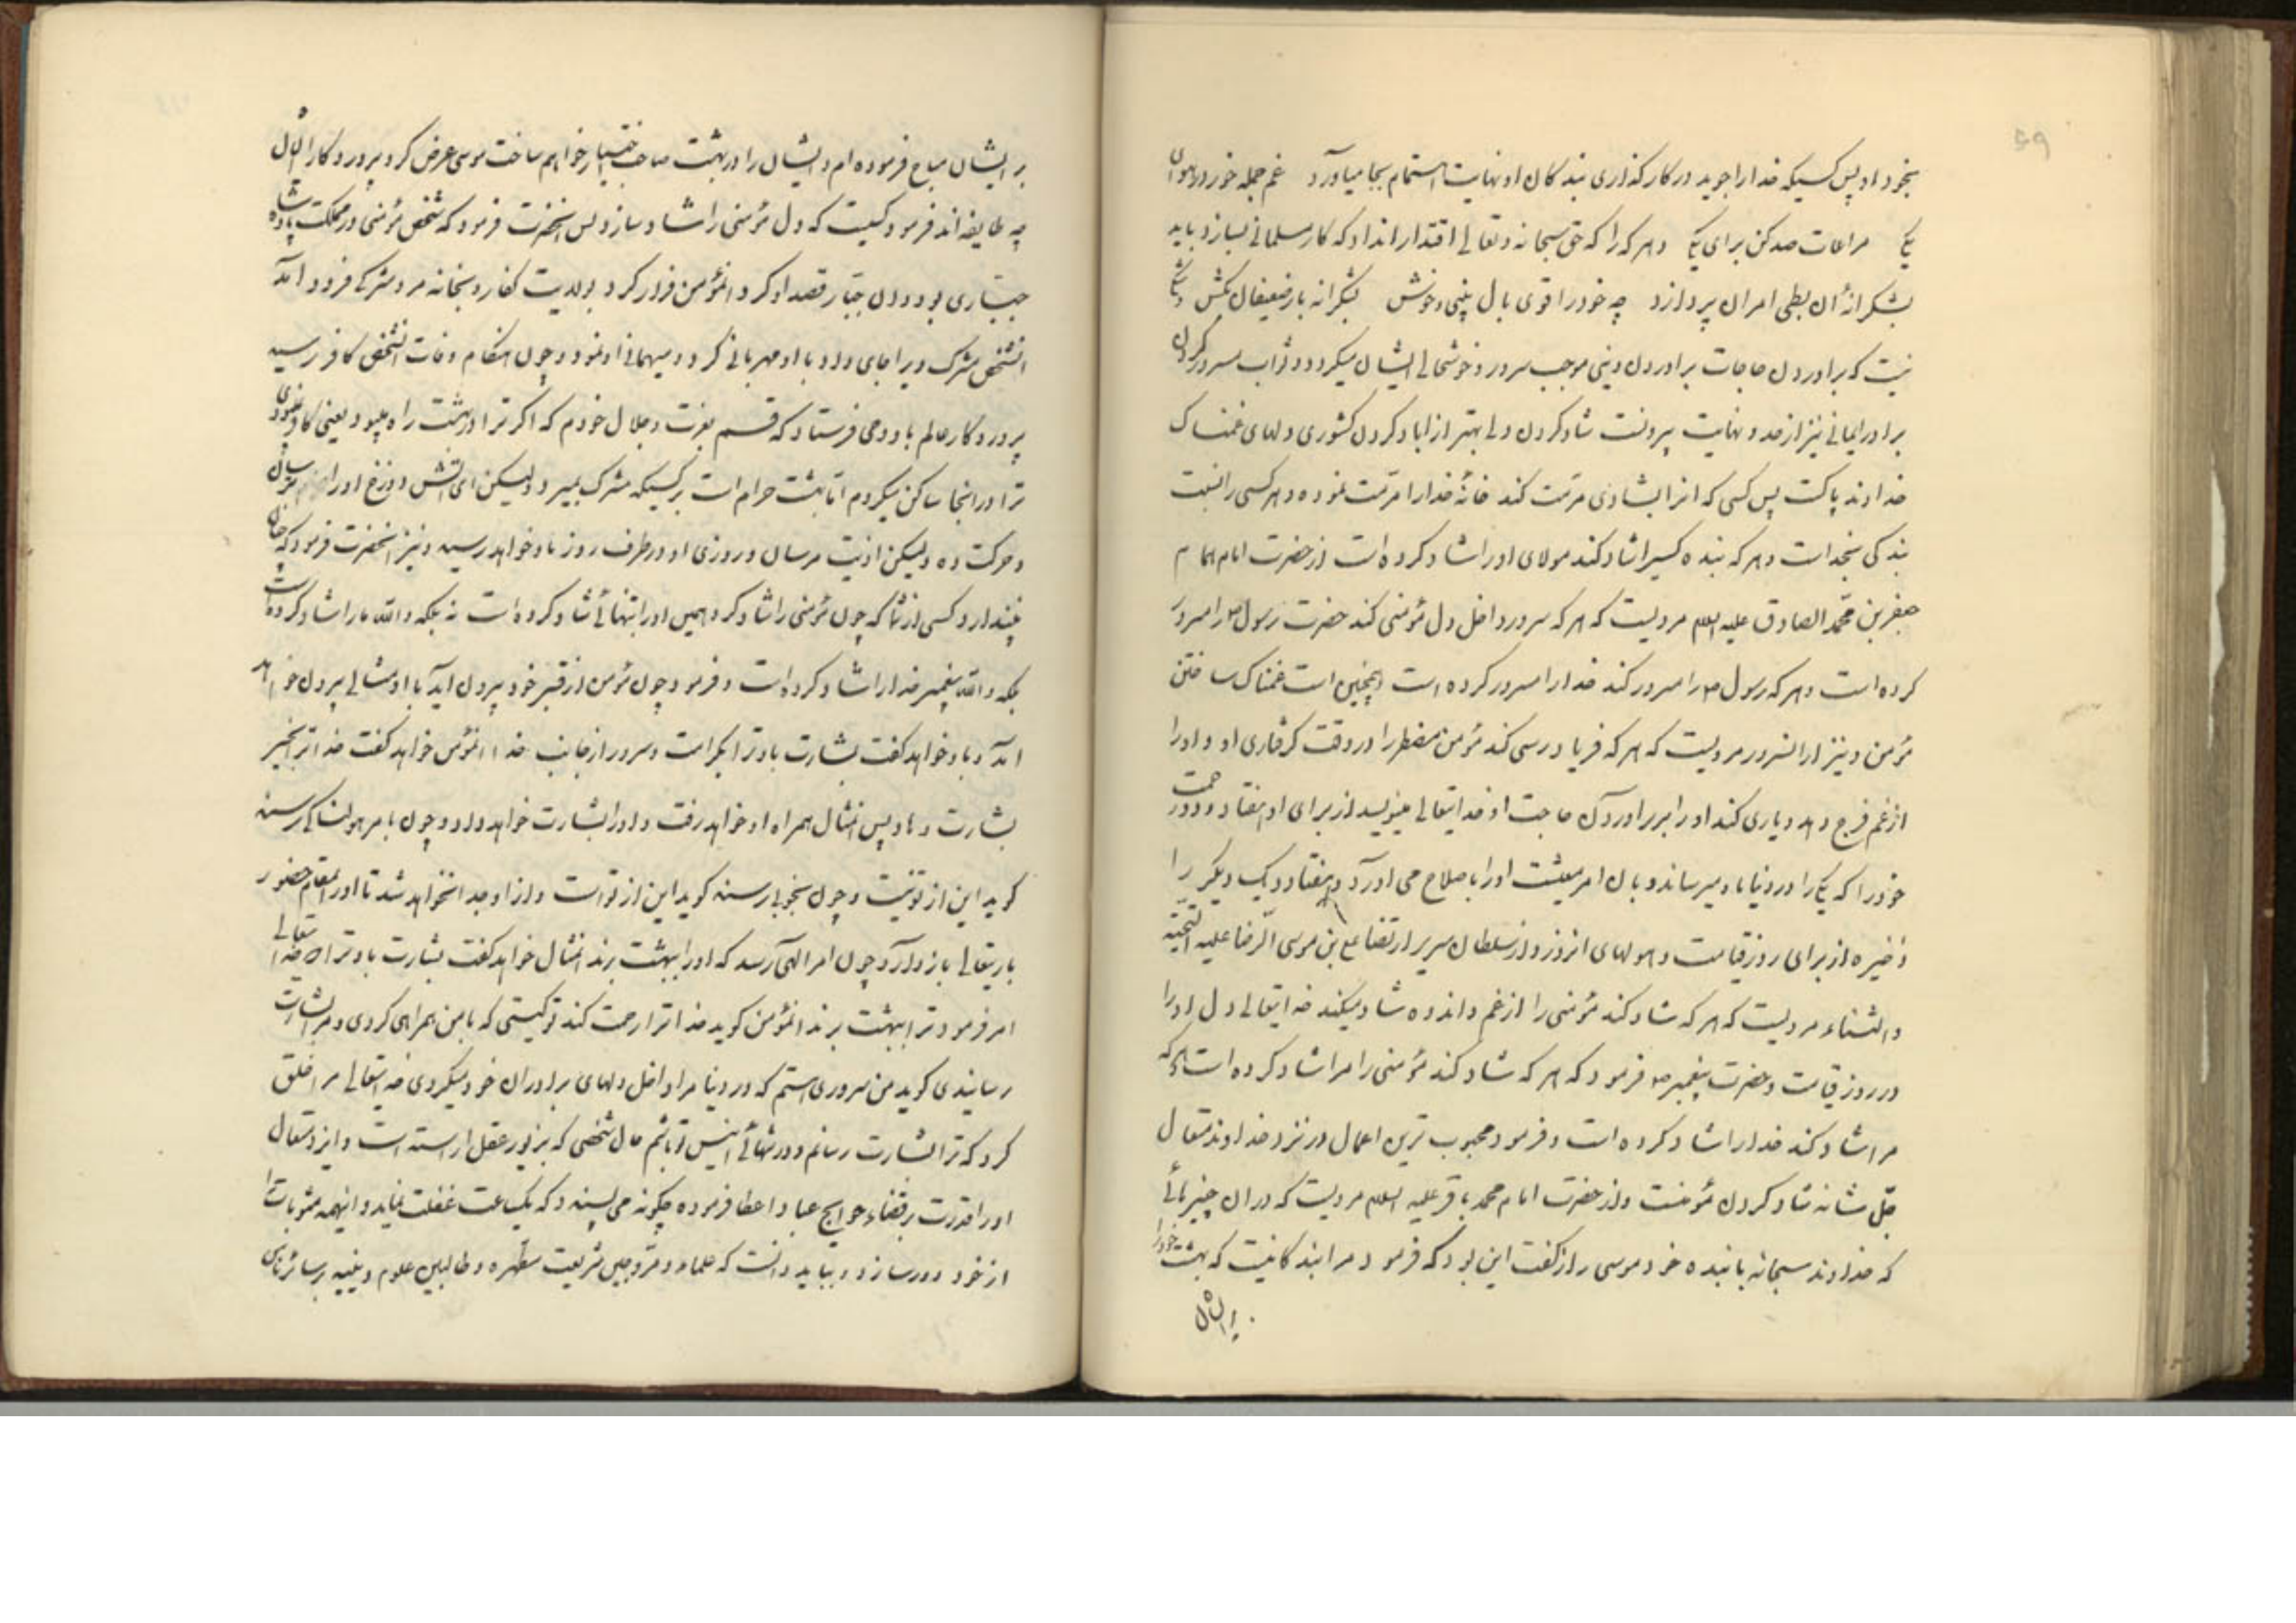 بخود او پس کسیکه خدا را جوید در کارگذاری بندگان او نهایت اهتمام بجا میاورد غم جمله خور در هوای
یکی مراعات صد کن برای یکی و هر که را که حق سبحانه و تعالی اقتدار انداد که کار مسلمانی بسازد باید
بشکرانهٔ آن بطی امران پردازد چه خود را قوی بال بینی و خوش بشکرانه بار ضعیفان بکش و شکی
نیست که براوردن حاجات برادران دینی موجب سرور و خوشحالی ایشان میگردد و ثواب مسرور کردن
برادر ایمانی نیز از حد و نهایت بیرونست شاد کردن دلی بهتر از اباد کردن کشوری دلهای غمناک
خداوند پاکست پس کسی که انرا بشادی مرمت کند خانهٔ خدا را مرمت نموده و هر کسی را نسبت
بندگی بخداست و هر که بنده کسیرا شاد کند مولای او را شاد کرده است از حضرت امام همام
جعفر بن محمد الصادق علیه السلام مرویست که هر که سرور داخل دل مؤمنی کند حضرت رسول ص را مسرور
کرده است و هر که رسول ص را مسرور کند خدا را مسرور کرده است و همچنین است غمناک ساختن
مؤمن و نیز از انسرور مرویست که هر که فریادرسی کند مؤمن مضطر را در وقت گرفتاری او و او را
از غم فرج دهد و یاری کند او را بر براوردن حاجت او خدایتعالی مینویسد از برای او هفتاد و دو رحمت
خود را که یکی را در دنیا باو میرساند و بان امر معیشت او را باصلاح می اورد و هفتاد و یک دیگر را
ذخیره از برای روز قیامت و هولهای انروز و از سلطان سریر ارتضا علی بن موسی الرضا علیه التحیة
و الثناء مرویست که هر که شاد کند مؤمنی را از غم و اندوه شاد میکند خدایتعالی دل او را
در روز قیامت و حضرت پیغمبر ص فرمود که هر که شاد کند مؤمنی را مرا شاد کرده است و هر که
مرا شاد کند خدا را شاد کرده است و فرمود محبوب ترین اعمال در نزد خداوند متعال
جل شانه شاد کردن مؤمنست و از حضرت امام محمد باقر علیه السلام مرویست که در ان چیزهائی
که خداوند سبحانه با بنده خود موسی راز گفت این بود که فرمود مرا بندگانیست که بهشت خود را
بر ایشان
بر ایشان مباح فرموده ام و ایشان را در بهشت صاحب اختیار خواهم ساخت موسی عرض کرد پرورد کارا اینان
چه طایفه اند فرمود کسیت که دل مؤمنی را شاد سازد پس انحضرت فرمود که شخص مؤمنی در مملکت پادشاه
جباری بود و ان جبار قصد او کرد انمؤمن فرار کرد بولایت کفار و بخانه مرد مشرکی فرود امد
انشخص مشرک ویرا جای داد و با او مهربانی کرد و میهمانی او نمود و چون هنگام وفات انشخص کافر رسید
پروردگار عالم باو وحی فرستاد که قسم بعزت و جلال خودم که اگر ترا در بهشت راه میبود یعنی کافر نبودی
ترا در انجا ساکن میکردم اما بهشت حرام است بر کسیکه مشرک بمیرد ولیکن ای اتش دوزخ او را بترسان
و حرکت ده ولیکن اذیت مرسان و روزی او در طرف روز باو خواهد رسید و نیز انحضرت فرمود که چنان
نپندارد کسی از شما که چون مؤمنی را شاد کرد همین او را بتنهائی شاد کرده است نه بلکه والله ما را شاد کرده است
بلکه والله پیغمبر خدا را شاد کرده است و فرمود چون مؤمن از قبر خود بیرون اید با او مثالی بیرون خواهد
امد و باو خواهد گفت بشارت باد ترا بکرامت و سرور از جانب خدا انمؤمن خواهد گفت خدا ترا بخیر
بشارت دهاد پس انمثال همراه او خواهد رفت و او را بشارت خواهد داد و چون بامر هولناکی رسند
گوید این از تو نیست و چون بخوبی رسند گوید این از تو است و از او جدا نخواهد شد تا او را بمقام حضور
باریتعالی باز دارد و چون امر الهی رسد که او را ببهشت برند انمثال خواهد گفت بشارت باد ترا که خدایتعالی
امر فرمود ترا ببهشت برند انمؤمن گوید خدا ترا رحمت کند تو کیستی که با من همراهی کردی و مرا بشارت
رسانیدی گوید من سروری هستم که در دنیا مرا داخل دلهای برادران خود میکردی خدایتعالی مرا خلق
کرد که ترا بشارت رسانم و در تنهائی انیس تو باشم حال شخصی که بزیور عقل اراسته است و ایزد متعال
او را قدرت بر قضاء حوایج عباد اعطا فرموده چگونه می پسندد که یکساعت غفلت نماید و اینهمه مثوبات را
از خود دور سازد و بباید دانست که علماء و مروجین شریعت مطهره و طالبین علوم دینیه بر سائر ناس